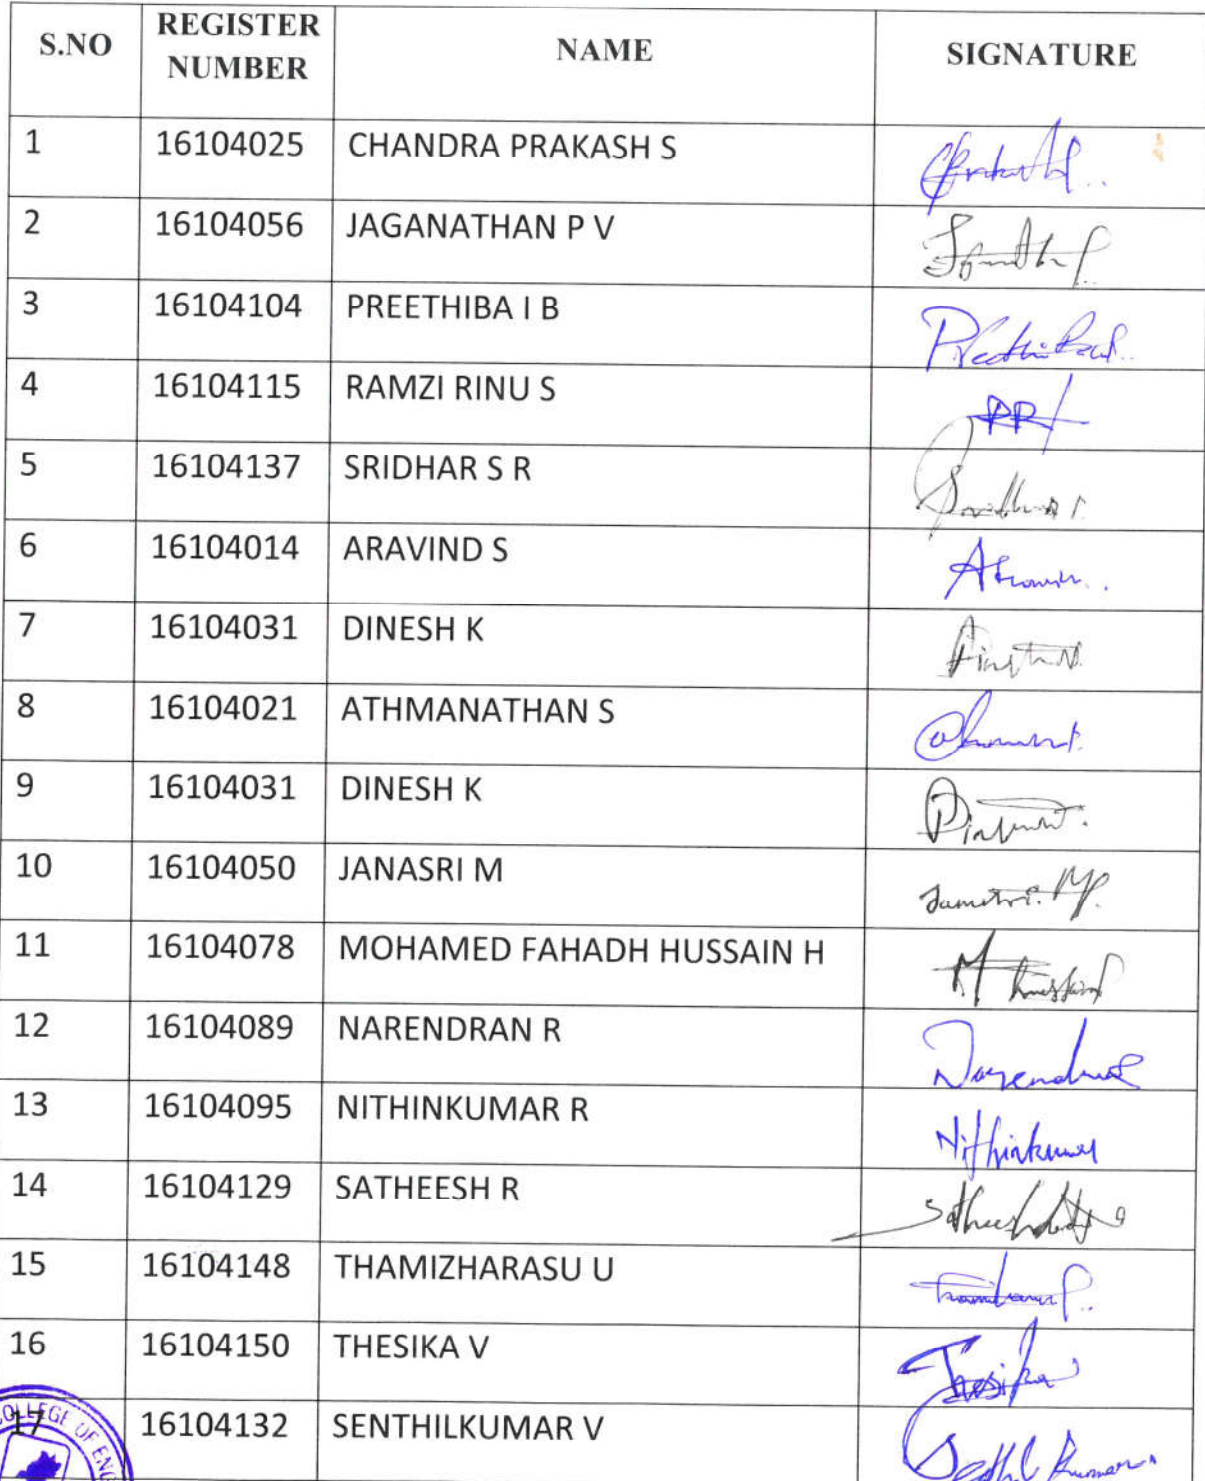 S.NO REGISTER NUMBER NAME SIGNATURE
1 16104025 CHANDRA PRAKASH S
2 16104056 JAGANATHAN P V
3 16104104 PREETHIBA I B
4 16104115 RAMZI RINU S RR
5 16104137 SRIDHAR S R
6 16104014 ARAVIND S
7 16104031 DINESH K
8 16104021 ATHMANATHAN S
9 16104031 DINESH K
10 16104050 JANASRI M
11 16104078 MOHAMED FAHADH HUSSAIN H
12 16104089 NARENDRAN R
13 16104095 NITHINKUMAR R Nithinkumar
14 16104129 SATHEESH R
15 16104148 THAMIZHARASU U
16 16104150 THESIKA V Thesika
17 16104132 SENTHILKUMAR V
COLLEGE OF ENG